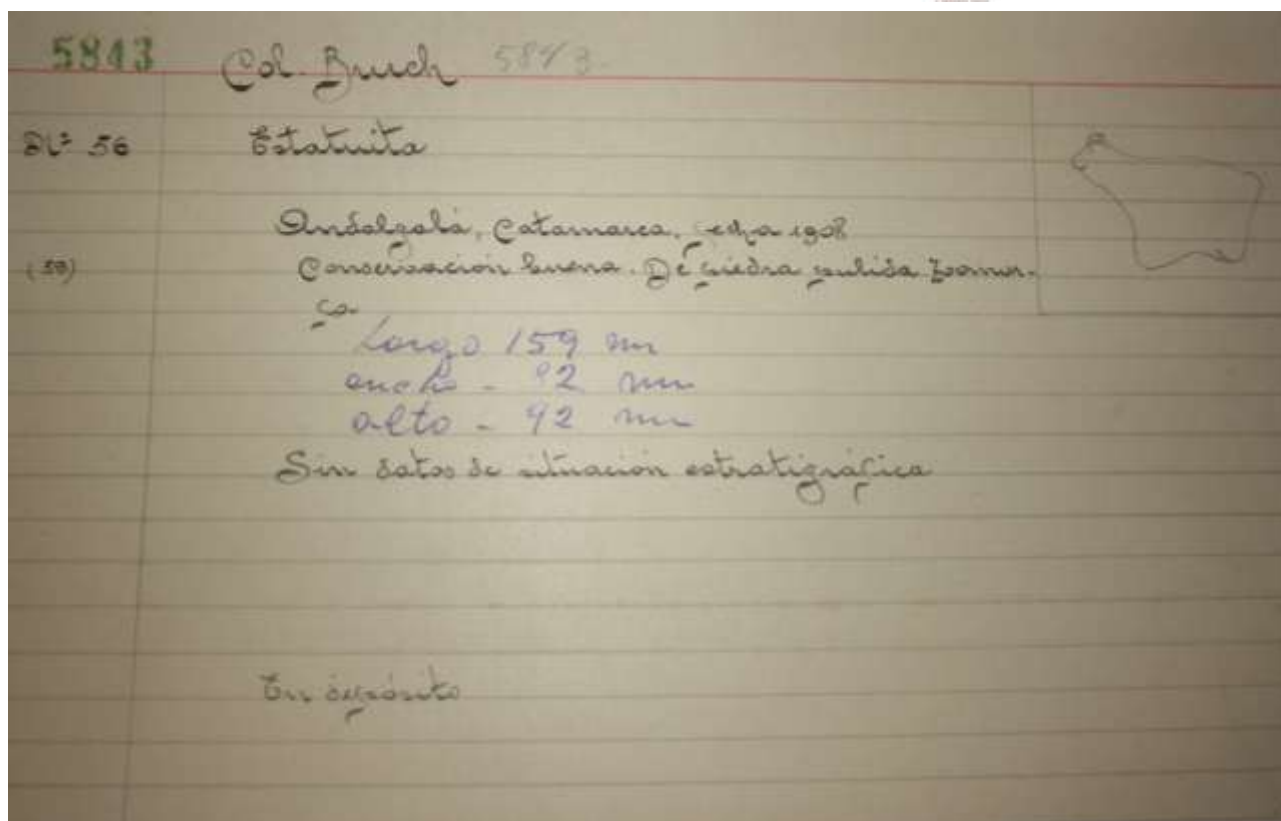 5843 Col. Bruch 5843.
Nº 56 Estatuita
Andalgalá, Catamarca, fecha 1908
(56) Conservación buena. De piedra pulida Zoomor-
fa.
Largo 159 mm
ancho - 92 mm
alto - 92 mm
Sin datos de situación estratigráfica
En depósito